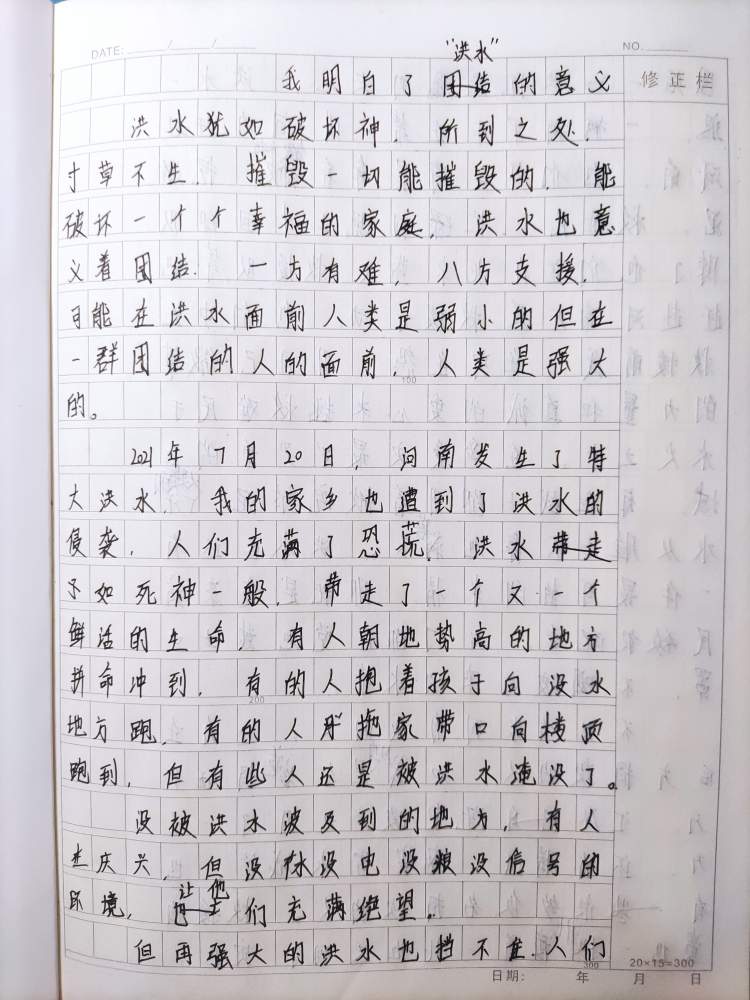 DATE: / / NO.
"洪水"
我明白了团结的意义 修正栏
洪水犹如破坏神，所到之处，
寸草不生，摧毁一切能摧毁的，能
破坏一个个幸福的家庭，洪水也意
义着团结．一方有难，八方支援．
可能在洪水面前人类是弱小的但在
一群团结的人的面前，人类是强大
的。
100
2021年7月20日，河南发生了特
大洪水，我的家乡也遭到了洪水的
侵袭，人们充满了恐慌，洪水带走
如死神一般，带走了一个又一个
鲜活的生命，有人朝地势高的地方
拼命冲到，有的人抱着孩子向没水
200
地方跑，有的人拖家带口向楼顶
跑到，但有些人还是被洪水淹没了。
没被洪水波及到的地方，有人
庆兴，但没水没电没粮没信号的
让他
环境，们充满绝望。
但再强大的洪水也挡不住．人们
300 20×15=300
日期： 年 月 日